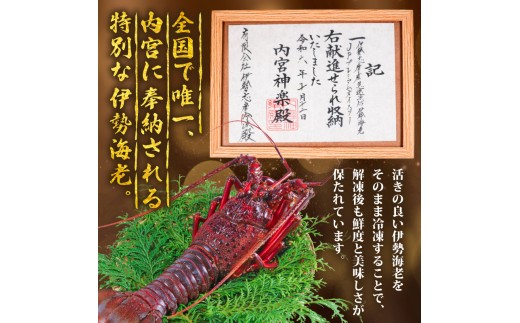 全国で唯一、
内宮に奉納される
特別な伊勢海老。
記
一
右献進せられ収納
いたしました
令和六年
内宮神楽殿
活きの良い伊勢海老を
そのまま冷凍することで、
解凍後も鮮度と美味しさが
保たれています。